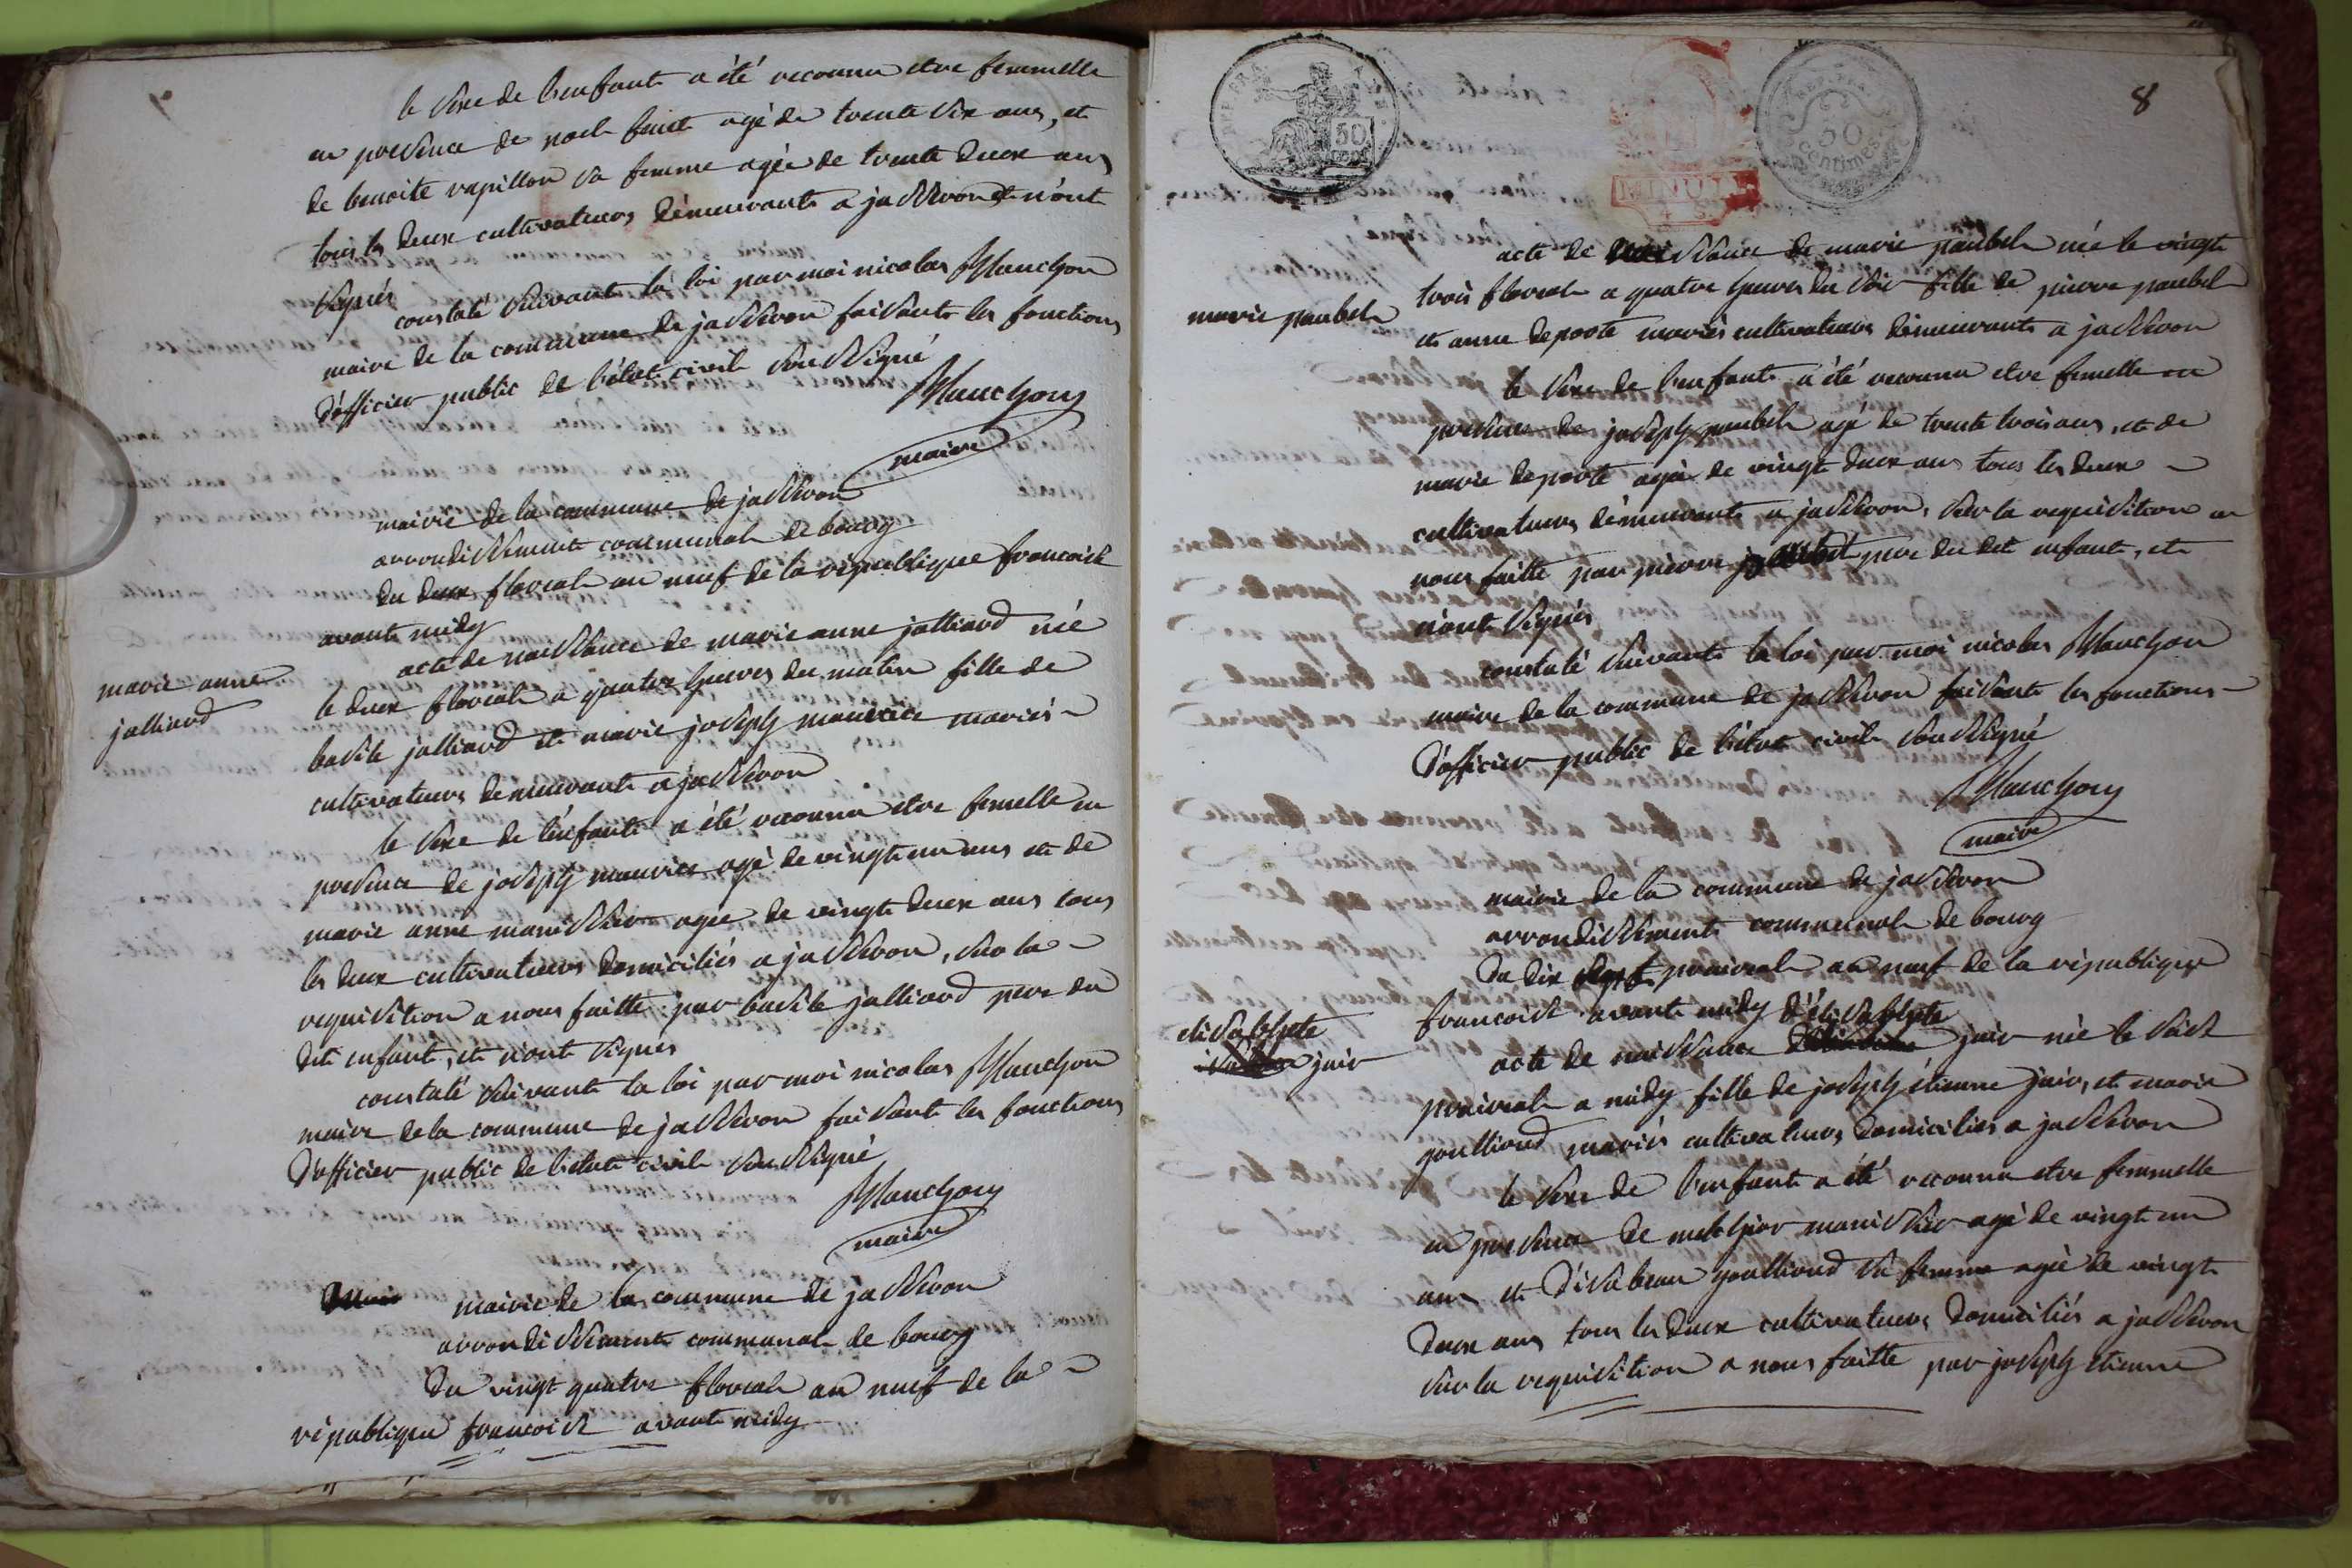 le sexe de l'enfant a été reconnu etre femmelle
en presence de noel agé de trente six ans, et
de benoite rapillon sa femme agée de trente deux ans
tous les deux cultivateurs demeurants a jasseron et n'ont
signés
constaté suivant la loi par moi nicolas Manchon
maire de la commune de jasseron faisant les fonctions
d'officier public de l'état civil soussigné
Manchon
maire
mairie de la commune de jasseron
arrondissement communal de bourg
du deux floreal an neuf de la république francoise
avant midy
marie anne
jalliard
acte de naissance de marie anne jalliard née
le deux floreal a quatre heures du matin fille de
basile jalliard et marie joseph maurice mariés
cultivateurs demeurants a jasseron
le sexe de l'enfant a été reconnu etre femelle en
presence de joseph maurice agé de vingt un ans et de
marie anne manissier agée de vingt deux ans tous
les deux cultivateurs domiciliés a jasseron, sur la
requisition a nous faitte par basile jalliard pere du
dit enfant, et n'ont signés
constaté suivant la loi par moi nicolas Manchon
maire de la commune de jasseron faisant les fonctions
d'officier public de l'état civil soussigné
Manchon
maire
mairie de la commune de jasseron
arrondissement communal de bourg
du vingt quatre floreal an neuf de la
république francoise avant midy
REP. FRA.
50
MINUTE
REP. FRA.
50
centimes
8
acte de naissance de marie paubel née le vingt
marie paubel
trois floreal a quatre heures du soir fille de pierre paubel
et anne deporte mariés cultivateurs demeurants a jasseron
le sexe de l'enfant a été reconnu etre femelle en
presence de joseph paubel agé de trente trois ans, et de
marie deporte agée de vingt deux ans tous les deux
cultivateurs demeurants a jasseron, sur la requisition a
nous faitte par pierre paubel pere du dit enfant, et
n'ont signés
constaté suivant la loi par moi nicolas Manchon
maire de la commune de jasseron faisant les fonctions
d'officier public de l'état civil soussigné
Manchon
maire
mairie de la commune de jasseron
arrondissement communal de bourg
du dix sept prairial an neuf de la république
francoise avant midy
elisabhete
jair
acte de naissance d'élisabhete jair née le seize
prairial a midy fille de joseph étienne jair, et marie
goulliard mariés cultivateurs domiciliés a jasseron
le sexe de l'enfant a été reconnu etre femmelle
en presence de melchior manissier agé de vingt un
ans et d'isabeau goulliard sa femme agée de vingt
deux ans tous les deux cultivateurs domiciliés a jasseron
sur la requisition a nous faitte par joseph etienne